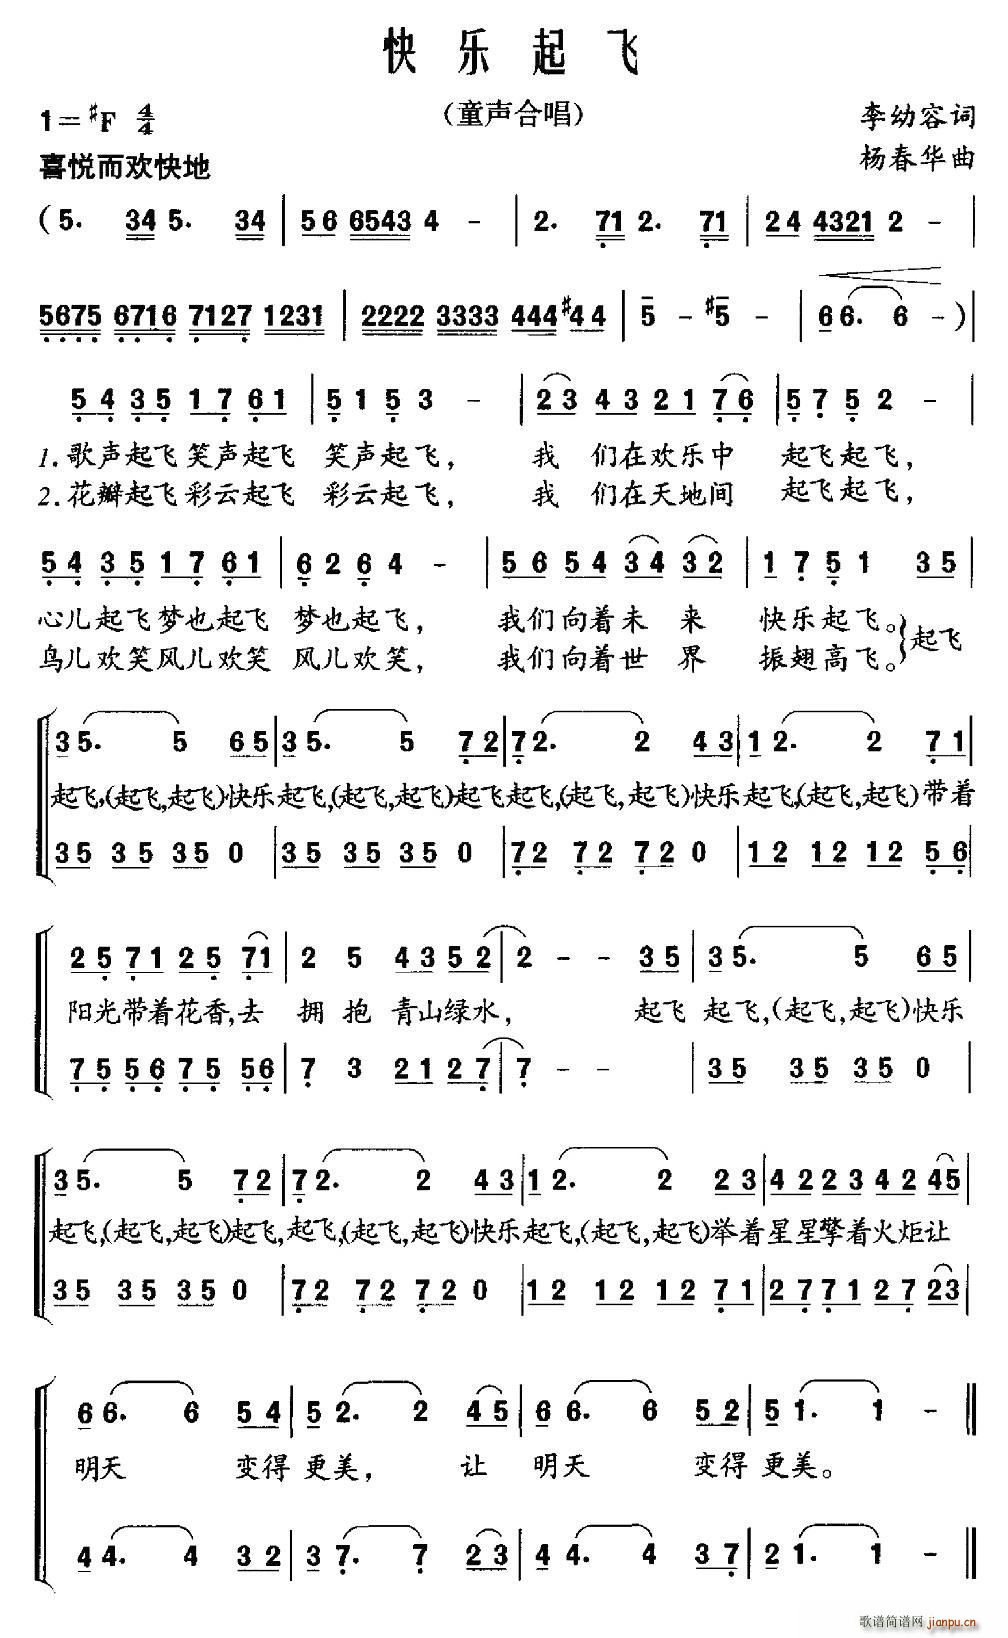 快乐起飞
1=♯F 4/4
(童声合唱)
李幼容词
喜悦而欢快地
杨春华曲
(5. 34 5. 34 | 56 6543 4 - | 2. 71 2. 71 | 24 4321 2 - |
5675 6716 7127 1231 | 2222 3333 444♯4 4 | 5 - ♯5 - | 6 6. 6 - ) |
5 4 3 5 1 7 6 1 | 5 1 5 3 - | 2 3 4 3 2 1 7 6 | 5 7 5 2 - |
1.歌声起飞 笑声起飞 笑声起飞, 我 们在欢乐中 起飞起飞,
2.花瓣起飞 彩云起飞 彩云起飞, 我 们在天地间 起飞起飞,
5 4 3 5 1 7 6 1 | 6 2 6 4 - | 5 6 5 4 3 4 3 2 | 1 7 5 1 3 5 |
心儿起飞 梦也起飞 梦也起飞, 我们向着未 来 快乐起飞。起飞
鸟儿欢笑 风儿欢笑 风儿欢笑, 我们向着世 界 振翅高飞。
3 5. 5 6 5 | 3 5. 5 7 2 | 7 2. 2 4 3 | 1 2. 2 7 1 |
起飞,(起飞,起飞)快乐 起飞,(起飞,起飞)起飞 起飞,(起飞,起飞)快乐 起飞,(起飞,起飞)带着
3 5 3 5 3 5 0 | 3 5 3 5 3 5 0 | 7 2 7 2 7 2 0 | 1 2 1 2 1 2 5 6 |
2 5 7 1 2 5 7 1 | 2 5 4 3 5 2 | 2 - - 3 5 | 3 5. 5 6 5 |
阳光带着花香,去 拥 抱 青山绿水, 起飞 起飞,(起飞,起飞)快乐
7 5 5 6 7 5 5 6 | 7 3 2 1 2 7 | 7 - - | 3 5 3 5 3 5 0 |
3 5. 5 7 2 | 7 2. 2 4 3 | 1 2. 2 2 3 | 4 2 2 3 4 2 4 5 |
起飞,(起飞,起飞)起飞, 起飞,(起飞,起飞)快乐 起飞,(起飞,起飞)举着 星星擎着火炬让
3 5 3 5 3 5 0 | 7 2 7 2 7 2 0 | 1 2 1 2 1 2 7 1 | 2 7 7 1 2 7 2 3 |
6 6. 6 5 4 | 5 2. 2 4 5 | 6 6. 6 5 2 | 5 1. 1 - ‖
明天 变得 更美, 让 明天 变得 更美。
4 4. 4 3 2 | 3 7. 7 2 3 | 4 4. 4 3 7 | 2 1. 1 - ‖
歌谱简谱网 jianpu.cn